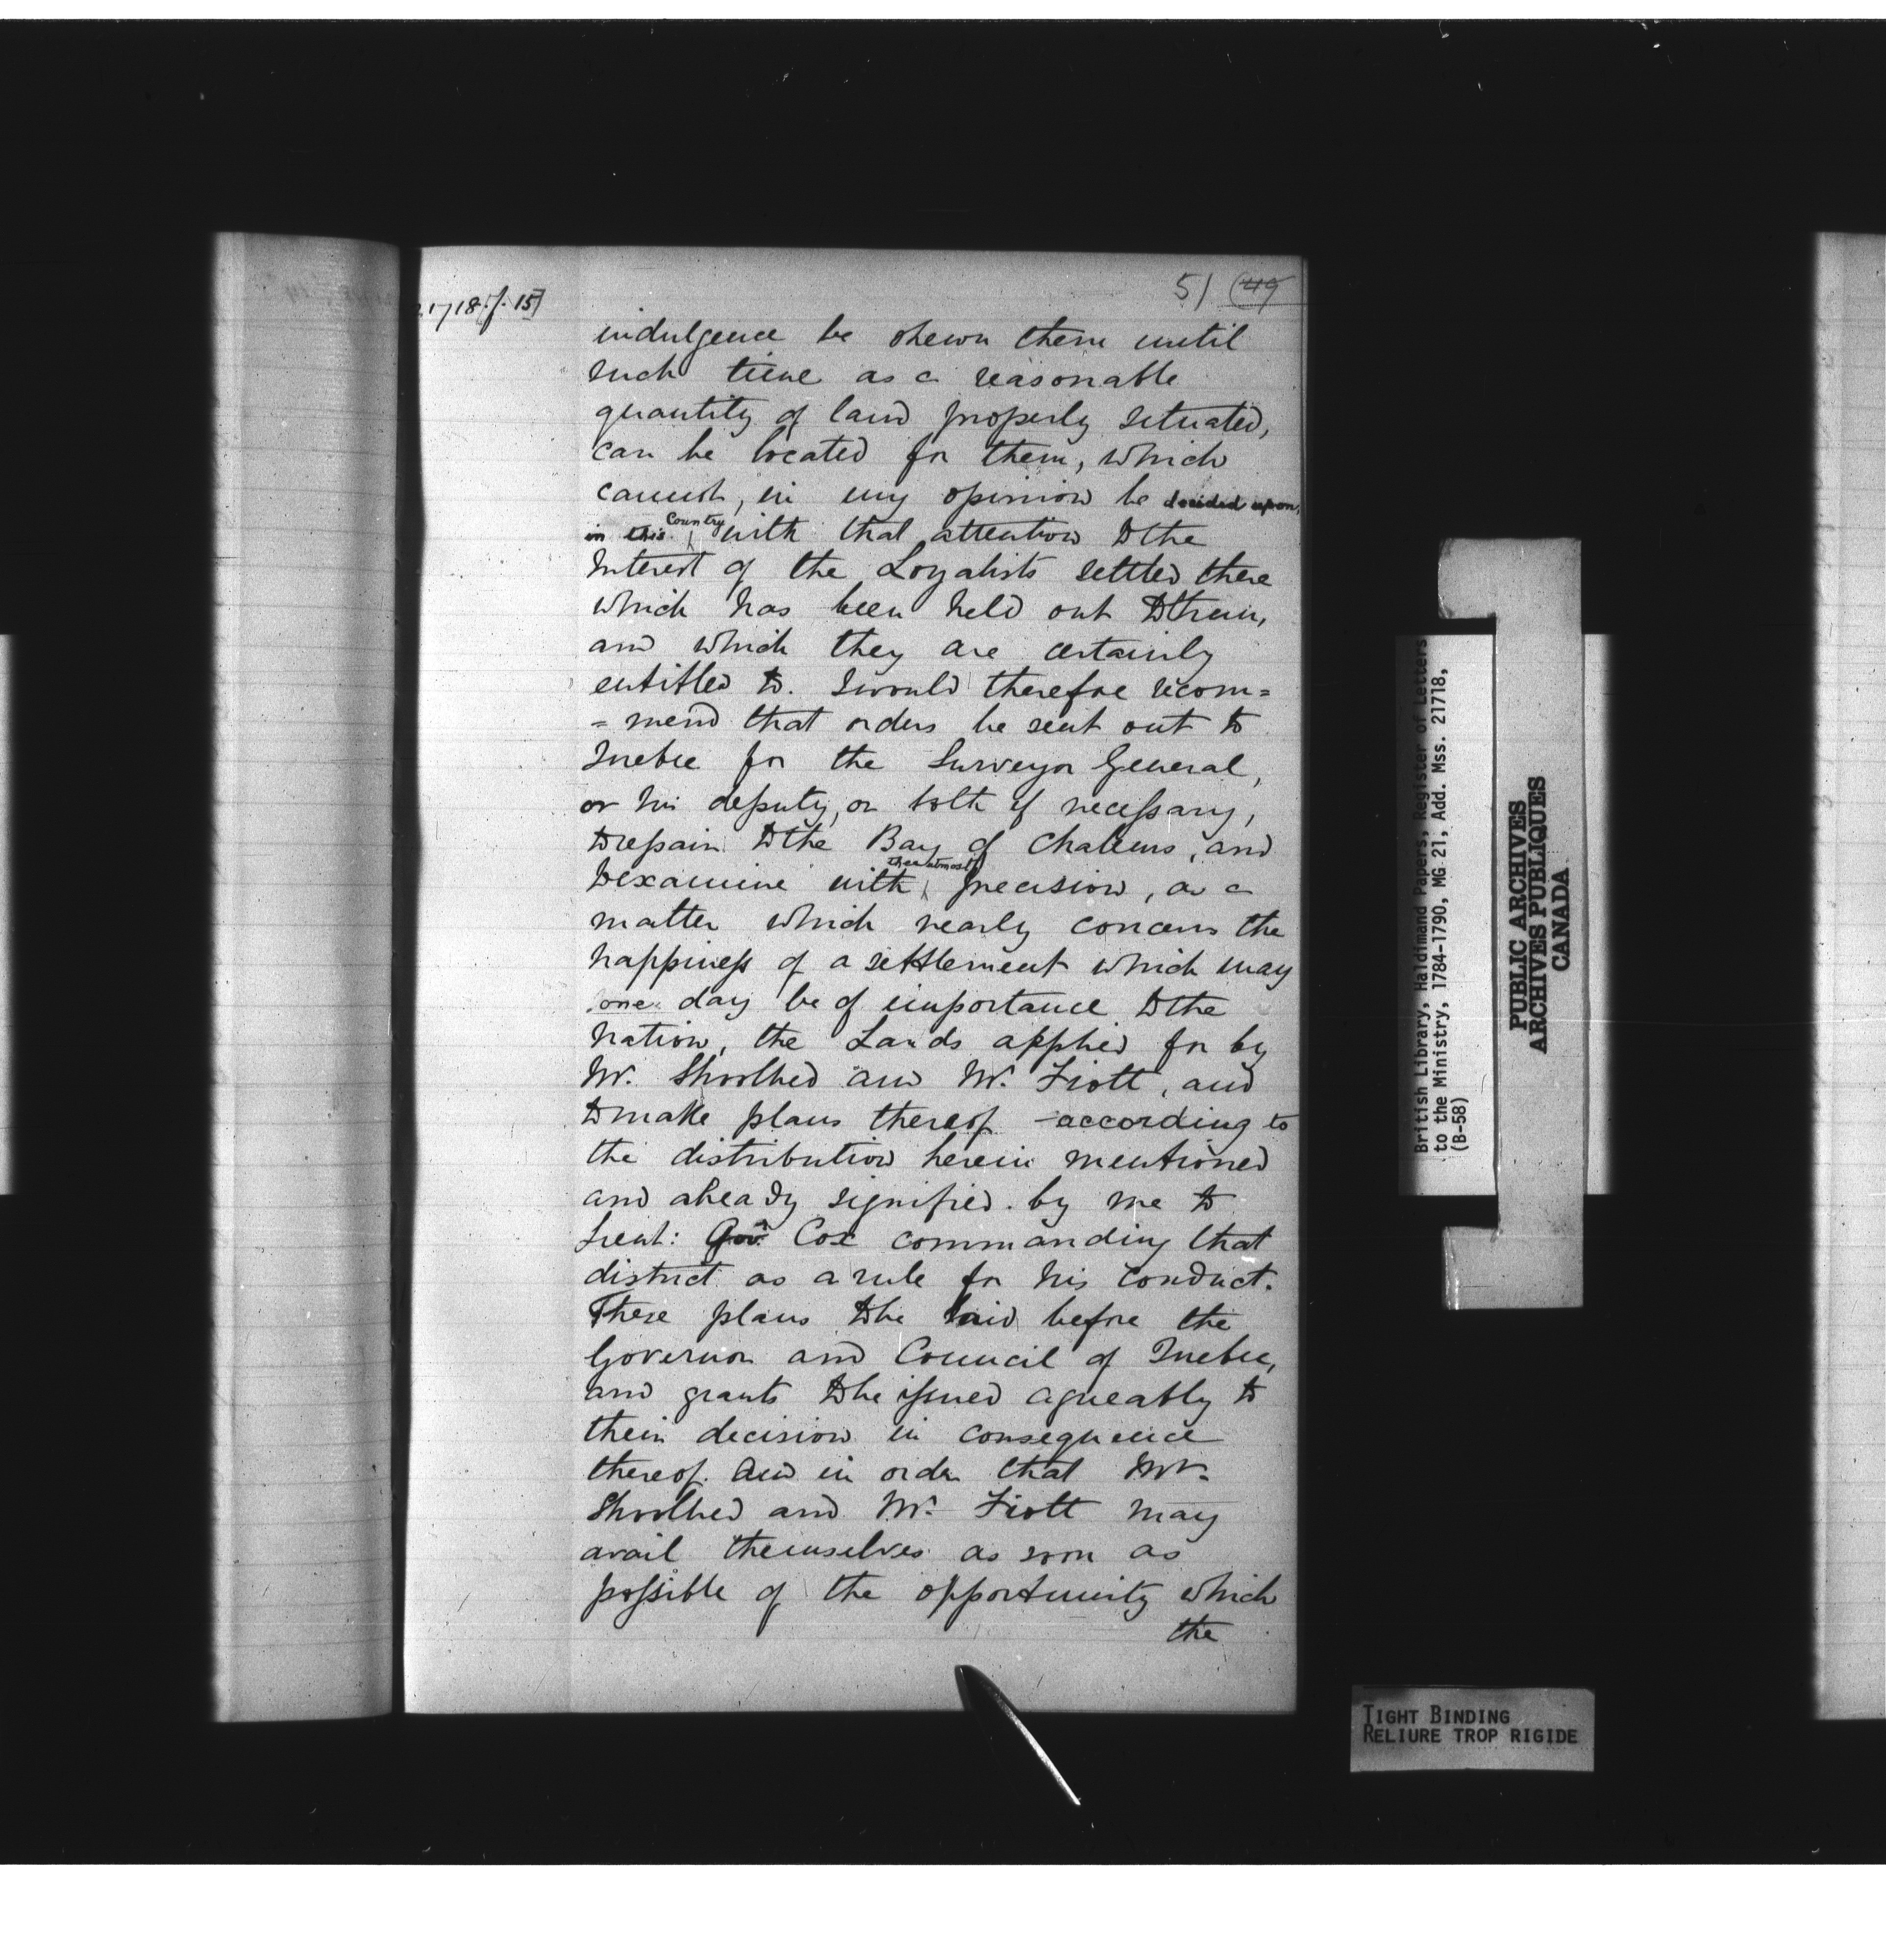 21718.f.157
51 (49
indulgence be shewn them until
such time as a reasonable
quantity of land properly situated,
can be located for them, which
cannot, in my opinion be decided upon,
in this Country with that attention to the
Interest of the Loyalists settled there
which has been held out to them,
and which they are certainly
entitled to. I would therefore recom=
=mend that orders be sent out to
Quebec for the Surveyor General,
or his deputy, or both if necessary,
to repair to the Bay of Chaleurs, and
to examine with the utmost precision, as a
matter which nearly concerns the
happiness of a settlement which may
one day be of importance to the
Nation, the Lands applied for by
Mr. Shoolbred and Mr. Fiott, and
to make plans thereof according to
the distribution herein mentioned
and already signified by me to
Lieut: Govr. Cox commanding that
district as a rule for his conduct.
These plans to be laid before the
Governor and Council of Quebec,
and grants to be issued agreeably to
their decision in consequence
thereof. And in order that Mr.
Shoolbred and Mr. Fiott may
avail themselves as soon as
possible of the opportunity which
the
British Library, Haldimand Papers, Register of Letters
to the Ministry, 1784-1790, MG 21, Add. Mss. 21718,
(B-58)
PUBLIC ARCHIVES
ARCHIVES PUBLIQUES
CANADA
TIGHT BINDING
RELIURE TROP RIGIDE